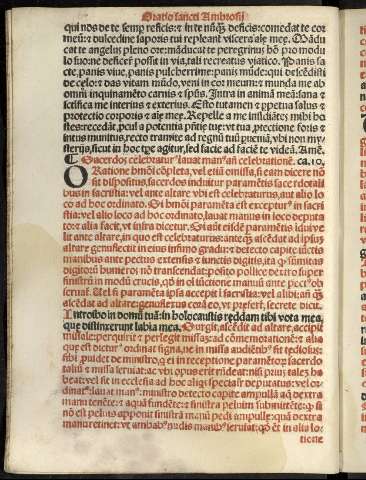 Oratio sancti Ambrosij
qui nos de te semp̄ reficis: ⁊ in te nūq̄ȝ deficis: comedat te cor
meū: ⁊ dulcedine saporis tui repleant̄ viscera aīe mee. Mādu
cat te angelus pleno ore: māducet te peregrinus hō pro modu
lo suo: ne deficere possit in via, tali recreatus viatico. Panis sā
cte, panis viue, panis pulcherrime: panis mūde: qui descēdisti
de celo: ⁊ das vitam mūdo, veni in cor meum: ⁊ munda me ab
omni inquinamēto carnis ⁊ sp̄us. Intra in animā meā: sana ⁊
sctīfica me interius ⁊ exterius. Esto tutamen ⁊ ꝑpetua salus ⁊
protectio corporis ⁊ aīe mee. Repelle a me insidiātes mihi ho
stes: recedāt, ꝓcul a potentia pn̄tie tue: vt tua ꝓtectione foris ⁊
intus munitus, recto tramite ad regnū tuū ꝑueniā, vbi non my-
sterijs, sicut in hoc tꝑe agitur, sed facie ad faciē te videā. Amē.
Sacerdos celebratur⁹ lauat man⁹ an̄ celebrationē. ca. 10.
Oratione hm̄oi cōpleta, vel etiā omissa, si eam dicere nō
sit dispositus, sacerdos induitur paramētis sacerdotali
bus in sacristia: vel ante altare vbi est celebraturus, aut alio lo
co ad hoc ordinato. Si hm̄oi paramēta est excepturus in sacri
stia: vel alio loco ad hoc ordinato, lauat manus in loco deputa
to: ⁊ alia facit, vt infra dicetur. Si aūt eisdē paramētis īduitur
ante altare, in quo est celebraturus: anteq̄ȝ ascēdat ad ip̄suȝ
altare genuflectit in eius infimo gradu: ⁊ detecto capite iūctis
manibus ante pectus extensis ⁊ iunctis digitis, ita ꝙ sūmitas
digitorū humeros nō transcendat: posito pollice dextro super
sinistrū in modū crucis, qd̄ in oī iūctione manuū ante pect⁹ ob
seruat̄. Uel si paramēta ipsa accepit ī sacristia: vel alibi: an̄ q̄ȝ
ascēdat ad altare: genuflexus corā eo, vt p̄refert̄, secrete dicit.
Introibo in domū tuā: in holocaustis reddam tibi vota mea,
que distinxerunt labia mea. Surgit, ascēdit ad altare, accipit
missale: perquirit ⁊ perlegit missaȝ: ad cōmemorationē: ⁊ alia
que est dictur⁹ ordinat signa, ne in missa audiētib⁹ sit tediosus:
sibi ꝓuidet de ministro, q̄ ei in receptione paramētorȝ sacerdo
taliū ⁊ missa seruiat: ac vbi opus erit rn̄deat: nisi priꝰ talem ha
beat: vel sit in ecclesia ad hoc aliqs specialr̄ deputatus: vel or-
dinat⁹: lauat man⁹: ministro detecto capite ampullā aq̄ dextra
manu tenēte: ⁊ aquā fundēte: ⁊ sinistra peluim submittēte: ꝙ si
nō est peluis apponit sinistrā manū pedi ampulle: quā dextra
manu retinet: vt ambab⁹ nudis manib⁹ seruiat: qd̄ et in alis lo-
tione